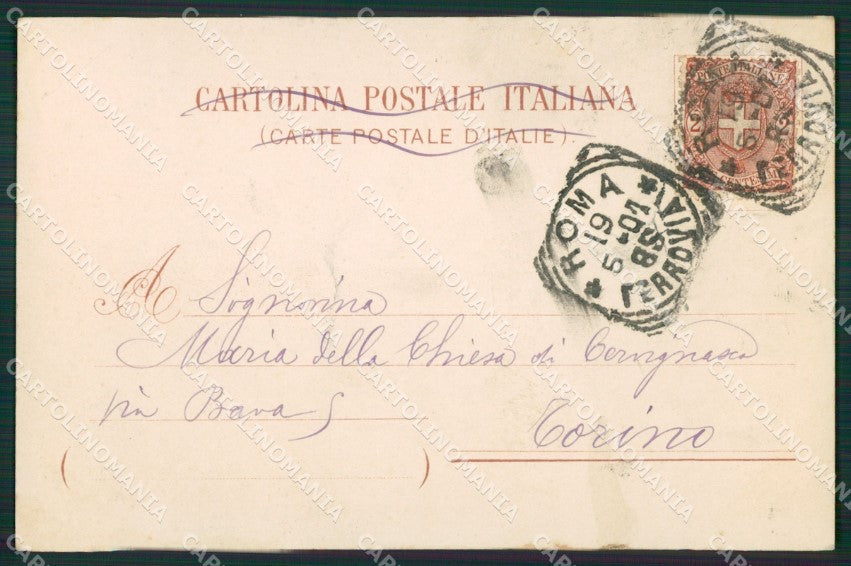 CARTOLINA POSTALE ITALIANA
(CARTE POSTALE D'ITALIE)
ROMA
19
5 - 01
8S
FERROVIA
A Signorina
Maria della Chiesa di Cervignasco
via Brava 5
Torino
CARTOLINOMANIA